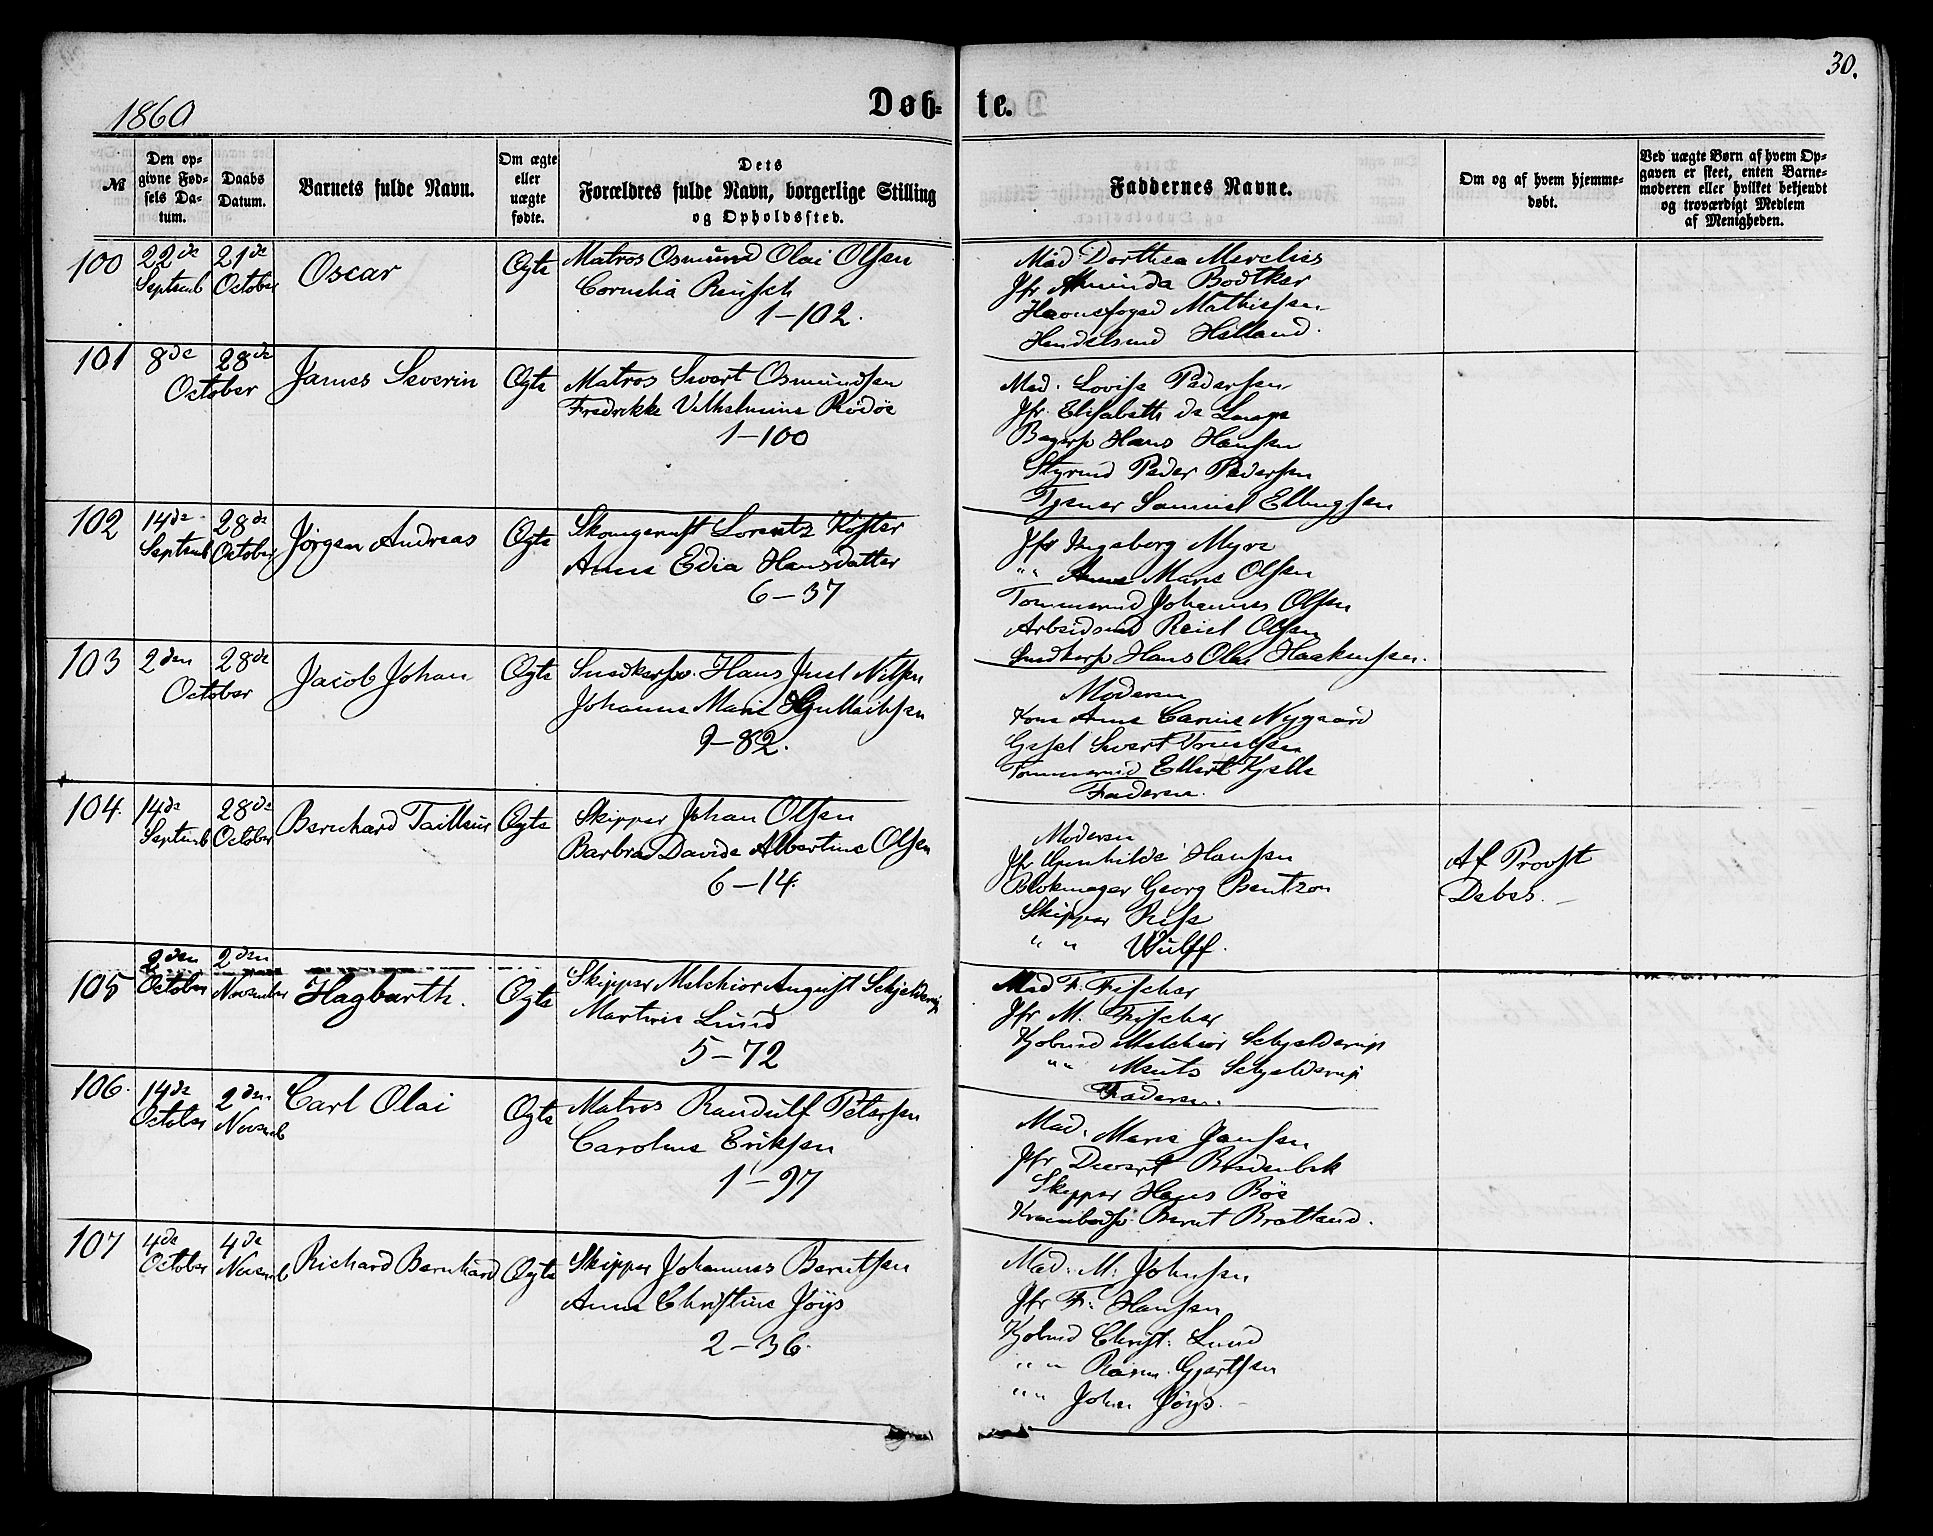 30.
1860
Døb- te.
№
Den opgivne Fødsels Datum.
Daabs Datum.
Barnets fulde Navn.
Om ægte eller uægte fødte.
Dets Forældres fulde Navn, borgerlige Stilling og Opholdssted.
Faddernes Navne.
Om og af hvem hjemmedøbt.
Ved uægte Børn af hvem Opgaven er skeet, enten Barnemoderen eller hvilket bekjendt og troværdigt Medlem af Menigheden.
100 22de Septemb 21de October Oscar Ægte
Matros Osmund Olai Olsen
Cornelia Reusch
1-102.
Mad Dorthea Mercelies
Jfr Amunda Bødtker
Havnefoged Mathiesen
Helland.
101 8de 28de October James Severin Ægte
Matros Sivert Osmundsen
Fredrikke Vilhelmine Rødøe
1-100
Mad. Lovise Pedersen
Jfr. Elisabeth de Lange
Hans Hansen
Styrmd Peder Pedersen
Tjener Samuel Ellingsen
102 14de Septemb 28de October Jørgen Andreas Ægte
Lorentz Køster
Anne Edia Hansdatter
6-37
Jfr Ingeborg Myre
" " Anne Marie Olsen
Tømmermd Johannes Olsen
Arbeidsmd Olsen
Hans Olai Haakensen.
103 2den 28de October Jacob Johan Ægte
Hans Juel Nilsen
Johanne Marie
9-82.
Moderen
Kone Anne Carine Nygaard
Sivert
Tømmermd Ellert Kjelle
Faderen.
104. 14de Septemb 28de October Bernhard Ægte
Skipper Johan Olsen
Barbra Davide Albertine Olsen
6-14.
Moderen
Jfr Gunhilde Hansen
Blokmager Georg Bentzon
Skipper Riise
" " Wulff.
Af Provst
Debes.
105 2den October 2den November Hagbarth. Ægte
Skipper Melchior August Schjelderup
Martine Lund
5-72
Mad F. Fischer
Jfr M. Fischer
Kjøbmd Melchior Schjelderup
" " Mentz Schjelderup
Faderen.
106. 14de October 2den Novemb Carl Olai Ægte
Matros Randulf Petersen
Caroline Eriksen
1-97
Mad. Marie Jansen
Jfr
Skipper Hans Bøe
Bernt Bratland.
107 4de October 4de Novemb Richard Bernhard Ægte
Skipper Johannes Berntsen
Anne Christine Jøys
2-36.
Mad. M. Johnsen
Jfr F. Hansen
Kjøbmd Christ. Lund
" " Rasm. Gjertsen
" " Johan Jøys.